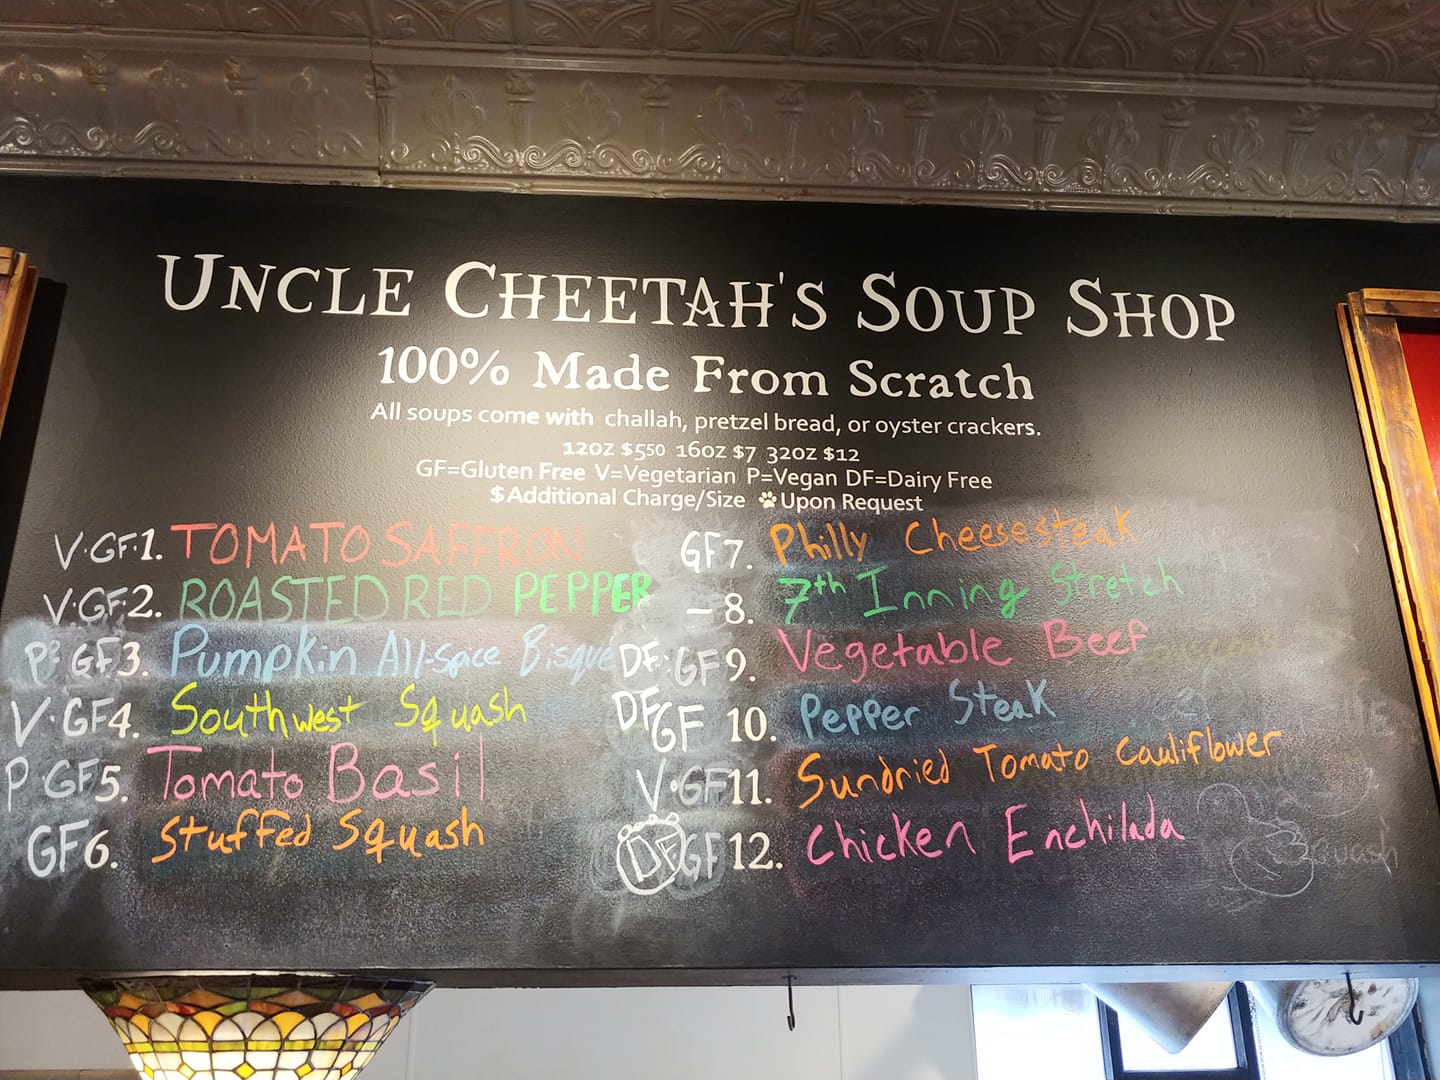 UNCLE CHEETAH'S SOUP SHOP
100% Made From Scratch
All soups come with challah, pretzel bread, or oyster crackers.
12oz $550 16oz $7 32oz $12
GF=Gluten Free V=Vegetarian P=Vegan DF=Dairy Free
$Additional Charge/Size Upon Request
V·GF·1. TOMATO SAFFRON
V·GF·2. ROASTED RED PEPPER
P· GF3. Pumpkin All-Spice Bisque
V·GF4. Southwest Squash
P·GF5. Tomato Basil
GF6. Stuffed Squash
GF7. Philly Cheesesteak
-8. 7th Inning Stretch
DF·GF9. Vegetable Beef
DF GF 10. Pepper Steak
V·GF11. Sundried Tomato Cauliflower
DF GF 12. Chicken Enchilada